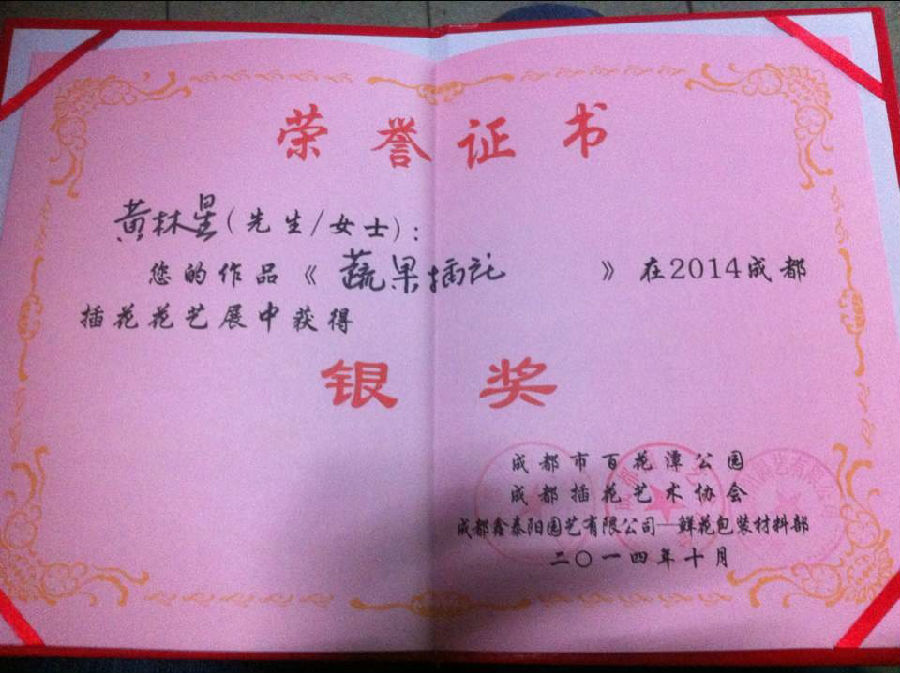 荣誉证书
黄林星(先生/女士):
您的作品《蔬果插花》在2014成都
插花花艺展中获得
银奖
成都市百花潭公园
成都插花艺术协会
成都鑫泰阳园艺有限公司—鲜花包装材料部
二〇一四年十月